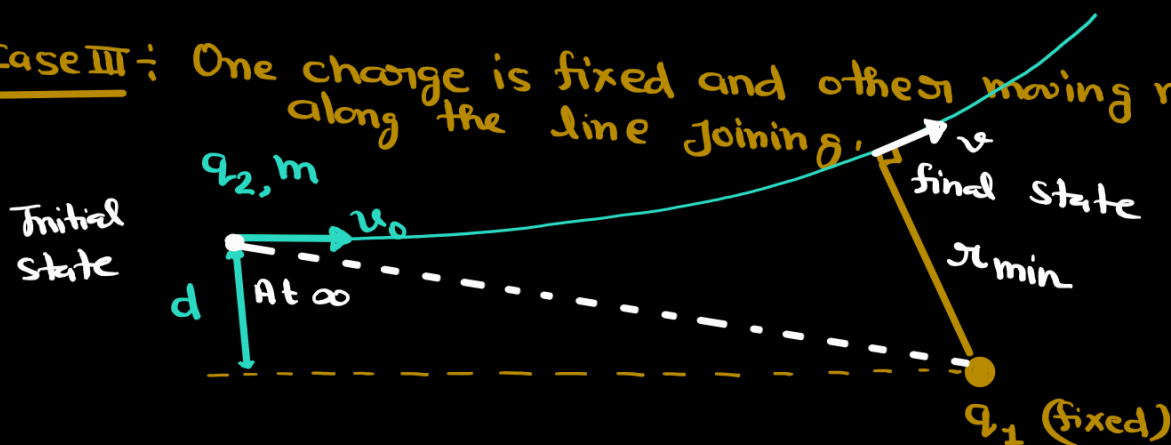 Case III ÷ One charge is fixed and other moving n
along the line joining.
q₂, m
u₀
v
final state
Initial
state
r min
d
At ∞
q₁ (fixed)